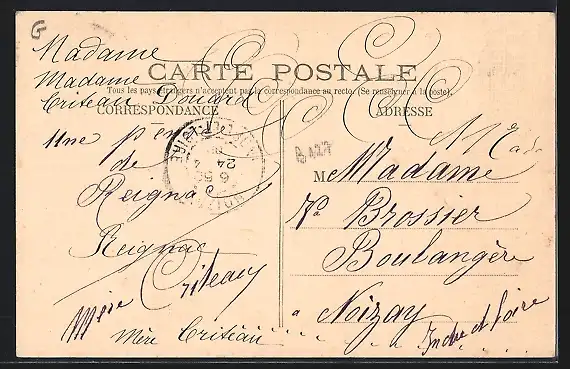 G
Madame
Madame
Criteau Douard
CARTE POSTALE
Tous les pays étrangers n'acceptent pas la correspondance au recto. (Se renseigner à la poste).
CORRESPONDANCE
ADRESSE
Une pen
de
Reigna
Reignac
Criteau
Mère
Mère Criteau
24
M Madame
Va Brossier
Boulangère
à Noizay
Indre et Loire